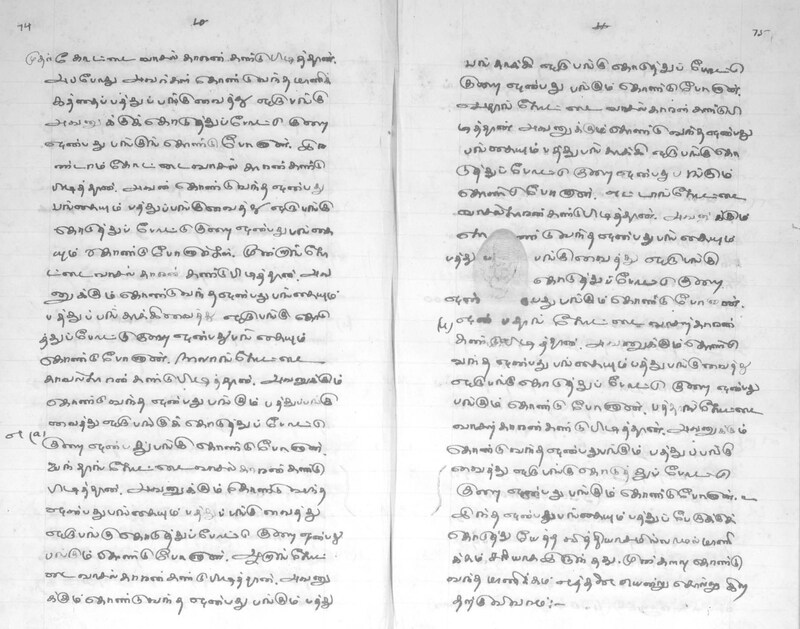 74
முதற் கோட்டை வாசல் காரன் கண்டு பிடித்தான்.
அப்போது அவர்கள் கொண்டு வந்த மாணிக்
கத்தைப் பத்துப் பங்கு வைத்து ஒருபங்கு
அவனுக்குக் கொடுத்துப் போட்டு மீதி
ஒன்பது பங்குங் கொண்டு போனான். இர
ண்டாம் கோட்டை வாசல் காரன் கண்டு
பிடித்தான். அவன் கொண்டு வந்த ஒன்பது
பங்கையும் பத்துப் பங்கு வைத்து ஒருபங்கு
கொடுத்துப் போட்டு ஒன்பது பங்கை
யும் கொண்டு போனான். மூன்றாங் கோ
ட்டை வாசல் காரன் கண்டு பிடித்தான். அவ
னுக்கும் கொண்டு வந்த ஒன்பது பங்கையும்
பத்துப் பங்காக்கி வைத்து ஒருபங்கு கொடு
த்துப் போட்டு ஒன்பது பங்கையும்
கொண்டு போனான். நாலாங் கோட்டை
காவல்காரன் கண்டு பிடித்தான். அவனுக்கும்
கொண்டு வந்த ஒன்பது பங்கும் பத்துப்பங்கு
வைத்து ஒருபங்குக் கொடுத்துப் போட்டு
ஒன்பது பங்கு கொண்டு போனான்.
ஐந்தாங் கோட்டை வாசல் காரன் கண்டு
பிடித்தான். அவனுக்கும் கொண்டு வந்த
ஒன்பது பங்கையும் பத்துப் பங்கு வைத்து
ஒருபங்கு கொடுத்துப் போட்டு ஒன்பது
பங்கும் கொண்டு போனான். ஆறாங் கோட்
டை வாசல் காரன் கண்டு பிடித்தான். அவனு
க்கும் கொண்டு வந்த ஒன்பது பங்கும் பத்து
75
பங்காக்கி ஒருபங்கு கொடுத்துப் போட்டு
ஒன்பது பங்கும் கொண்டு போனான்.
ஏழாங் கோட்டை வாசல் காரன் கண்டுபி
டித்தான். அவனுக்கும் கொண்டு வந்த ஒன்பது
பங்கையும் பத்துப் பங்காக்கி ஒருபங்கு கொ
டுத்துப் போட்டு ஒன்பது பங்கும்
கொண்டு போனான். எட்டாங் கோட்டை
வாசல்காரன் கண்டு பிடித்தான். அவனுக்கும்
கொண்டு வந்த ஒன்பது பங்கையும்
பத்து பங்கு வைத்து ஒருபங்கு
கொடுத்துப் போட்டு
ஒன்பது பங்கும் கொண்டு போனான்.
கோட்டை வாசற் காரன்
கண்டு பிடித்தான். அவனுக்கும் கொண்டு
வந்த ஒன்பது பங்கையும் பத்து பங்கு வைத்து
ஒருபங்கு கொடுத்துப் போட்டு ஒன்பது
பங்கும் கொண்டு போனான். பத்தாங் கோட்டை
வாசற் காரன் கண்டு பிடித்தான். அவனுக்கும்
கொண்டு வந்த ஒன்பது பங்கும் பத்துப் பங்கு
வைத்து ஒருபங்கு கொடுத்துப் போட்டு
ஒன்பது பங்கும் கொண்டு போனான்.
இந்த ஒன்பது பங்கையும் பத்துப் பேருக்குக்
கொடுத்து வித்தியாசமில்லாமல் மாணி
க்கம் சரியாக இருந்தது. கொண்டு
வந்த மாணிக்கம் எத்தனை யென்று